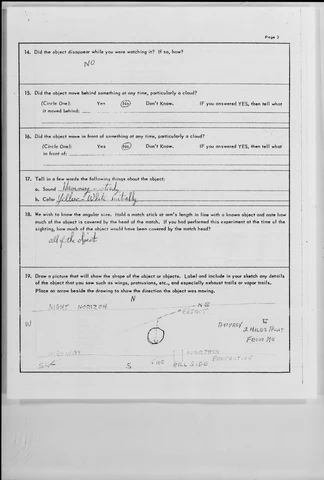 Page 3
14. Did the object disappear while you were watching it? If so, how?
NO
15. Did the object move behind something at any time, particularly a cloud?
(Circle One): Yes No Don't Know. IF you answered YES, then tell what
it moved behind:
16. Did the object move in front of something at any time, particularly a cloud?
(Circle One): Yes No Don't Know. IF you answered YES, then tell what
in front of:
17. Tell in a few words the following things about the object:
a. Sound Humming
b. Color Yellow - White initially
18. We wish to know the angular size. Hold a match stick at arm's length in line with a known object and note how
much of the object is covered by the head of the match. If you had performed this experiment at the time of the
sighting, how much of the object would have been covered by the match head?
all of the object
19. Draw a picture that will show the shape of the object or objects. Label and include in your sketch any details
of the object that you saw such as wings, protrusions, etc., and especially exhaust trails or vapor trails.
Place an arrow beside the drawing to show the direction the object was moving.
N
NIGHT HORIZON
NE
E
W
2 MILES
FROM ME
SW
S
HILL SIDE